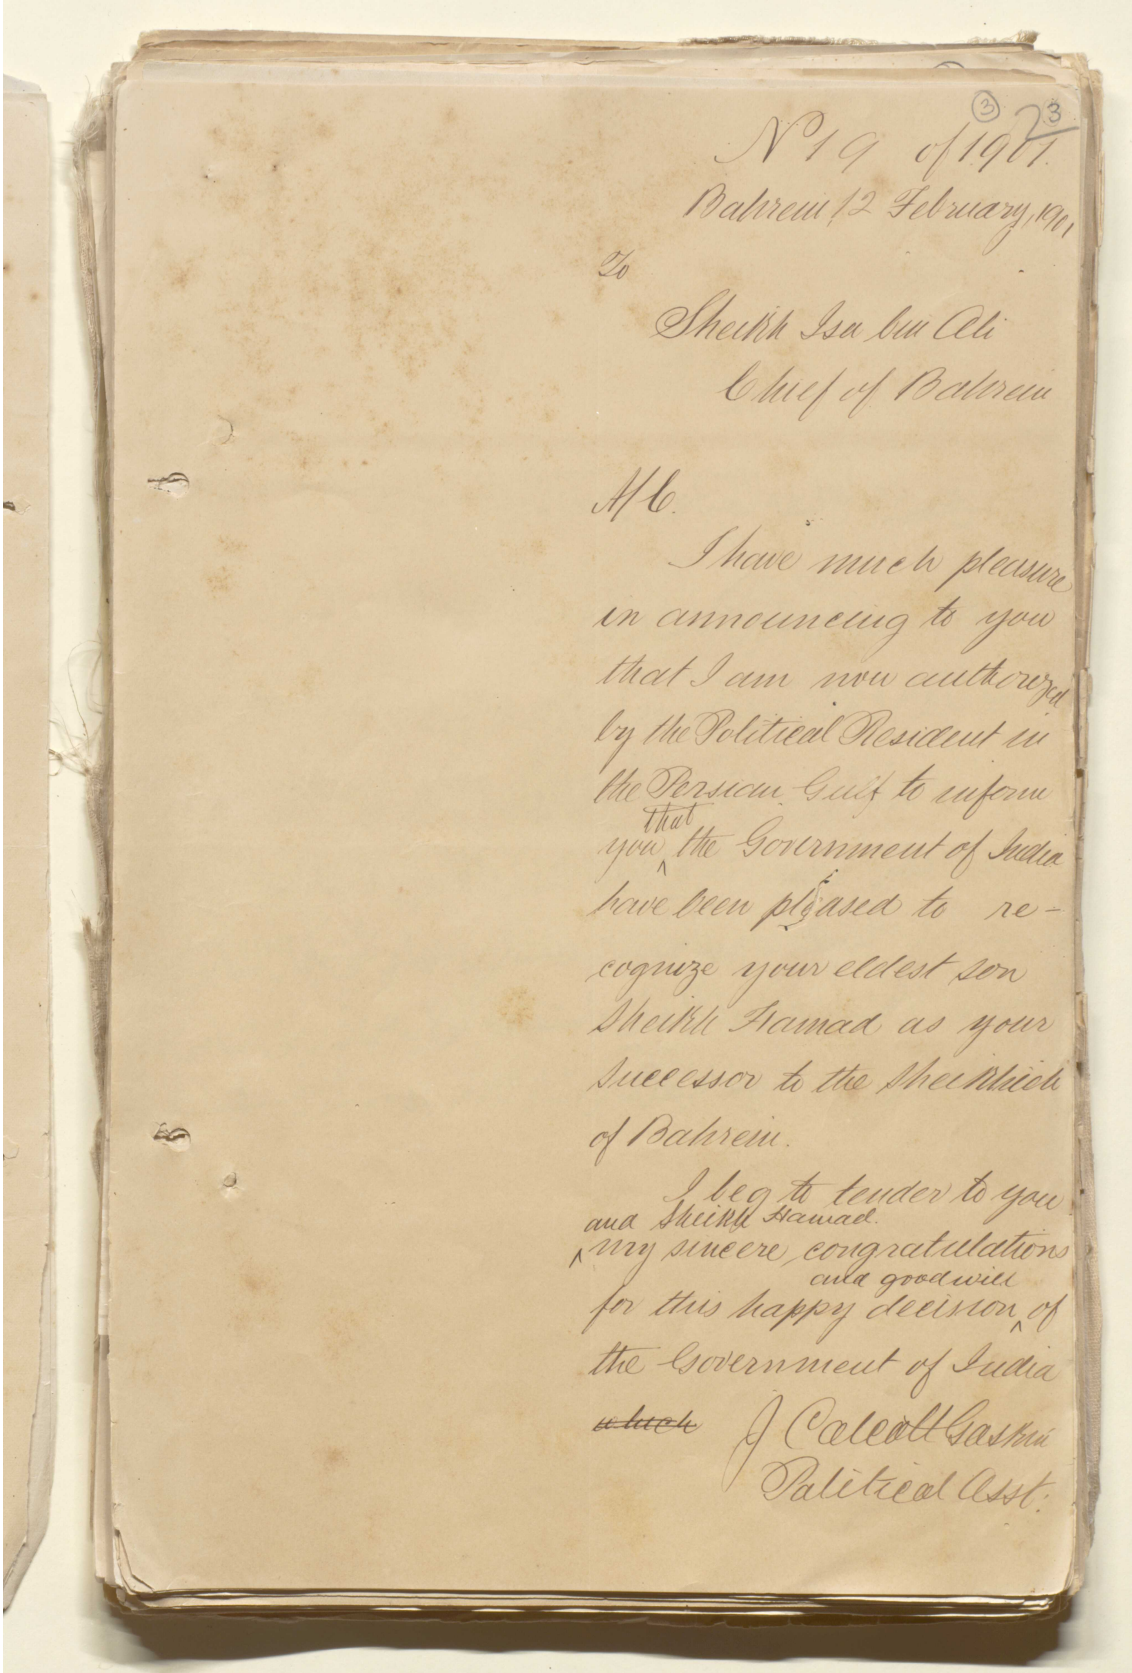 3
23
No 19 of 1901.
Bahrein 12 February, 1901
To
Sheikh Isa bin Ali
Chief of Bahrein
A/C.
I have much pleasure
in announcing to you
that I am now authorized
by the Political Resident in
the Persian Gulf to inform
that
you ^ the Government of India
have been pleased to re-
cognize your eldest son
Sheikh Hamad as your
Successor to the Sheikhich
of Bahrein.
I beg to tender to you
and Sheikh Hamad.
^ my sincere congratulations
and goodwill
for this happy decision ^ of
the Government of India
which J Calcott Gaskin
Political Asst: